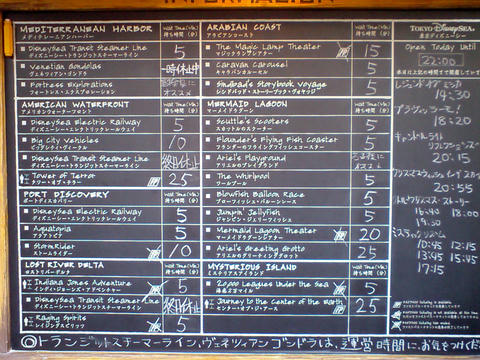 INFORMATION
MEDITERRANEAN HARBOR
メディテレーニアンハーバー
Wait Time (Min.)
待ち時間（分）
DisneySea Transit Steamer Line
ディズニーシー・トランジットスチーマーライン
5
Venetian Gondolas
ヴェネツィアン・ゴンドラ
一時休止中
Fortress Explorations
フォートレス・エクスプロレーション
AMERICAN WATERFRONT
アメリカンウォーターフロント
Wait Time (Min.)
待ち時間（分）
DisneySea Electric Railway
ディズニーシー・エレクトリックレールウェイ
5
Big City Vehicles
ビッグシティ・ヴィークル
10
DisneySea Transit Steamer Line
ディズニーシー・トランジットスチーマーライン
Tower of Terror
タワー・オブ・テラー
25
PORT DISCOVERY
ポートディスカバリー
Wait Time (Min.)
待ち時間（分）
DisneySea Electric Railway
ディズニーシー・エレクトリックレールウェイ
5
Aquatopia
アクアトピア
5
StormRider
ストームライダー
10
LOST RIVER DELTA
ロストリバーデルタ
Wait Time (Min.)
待ち時間（分）
Indiana Jones Adventure
インディ・ジョーンズ・アドベンチャー
5
DisneySea Transit Steamer Line
ディズニーシー・トランジットスチーマーライン
Raging Spirits
レイジングスピリッツ
5
ARABIAN COAST
アラビアンコースト
Wait Time (Min.)
待ち時間（分）
The Magic Lamp Theater
マジックランプシアター
15
Caravan Carousel
キャラバンカルーセル
5
Sindbad's Storybook Voyage
シンドバッド・ストーリーブック・ヴォヤッジ
5
MERMAID LAGOON
マーメイドラグーン
Wait Time (Min.)
待ち時間（分）
Scuttle's Scooters
スカットルのスクーター
5
Flounder's Flying Fish Coaster
フランダーのフライングフィッシュコースター
5
Ariel's Playground
アリエルのプレイグラウンド
The Whirlpool
ワールプール
5
Blowfish Balloon Race
ブローフィッシュ・バルーンレース
5
Jumpin' Jellyfish
ジャンピン・ジェリーフィッシュ
5
Mermaid Lagoon Theater
マーメイドラグーンシアター
20
Ariel's Greeting Grotto
アリエルのグリーティンググロット
25
MYSTERIOUS ISLAND
ミステリアスアイランド
Wait Time (Min.)
待ち時間（分）
20,000 Leagues Under the Sea
海底２万マイル
5
Journey to the Center of the Earth
センター・オブ・ジ・アース
25
TOKYO DISNEYSEA
東京ディズニーシー
Open Today Until
22:00
レジェンドオブミシカ
14:30
ブラヴィッシーモ！
18:20
キャンドルライトリフレクションズ
20:15
20:55
16:40
18:00
19:30
ミスティックリズム
10:45 12:15
13:45 15:45
17:15
◎トランジットスチーマーライン、ヴェネツィアンゴンドラは、運営時間に、お気をつけくだ